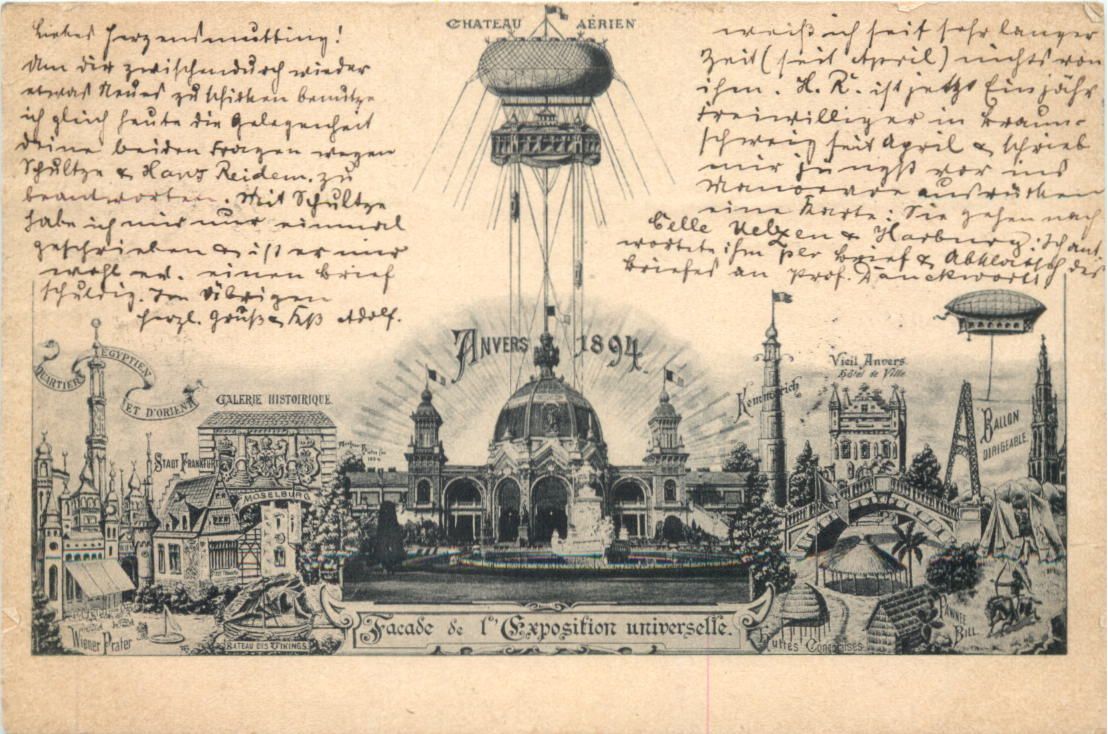 Liebes Herzensmutting!
Um dir zwischendurch wieder
etwas Neues zu schicken benutze
ich gleich heute die Gelegenheit
deine beiden Fragen wegen
Schultze & Hans Reidem. zu
beantworten. Mit Schultze
habe ich mir nur einmal
geschrieben & ist er mir
wohl ev. einen Brief
schuldig. Im Übrigen
herzl. Gruß & Kuß Adolf.
weiß ich seit sehr langer
Zeit (seit April) nichts von
ihm. H. R. ist jetzt Einjähr
freiwilliger in Braun-
schweig seit April & schrieb
mir jüngst vor ins
Manoevre ausrücken
eine Karte: Sie gehen nach
Celle Uelzen & Harburg. Ich ant-
wortete ihm per Brief & Abklatsch des
Briefes an Prof. Danckwortt
CHATEAU AÉRIEN
ANVERS 1894.
QUARTIER EGYPTIEN
ET D'ORIENT
GALERIE HISTOIRIQUE.
STADT FRANKFURT
MOSELBURG
Kemmerich
Vieil Anvers
Hôtel de Ville
BALLON
DIRIGEABLE
Wiener Prater
BATEAU DES VIKINGS.
Façade de l'Exposition universelle.
Huttes Congolaises
BILL.